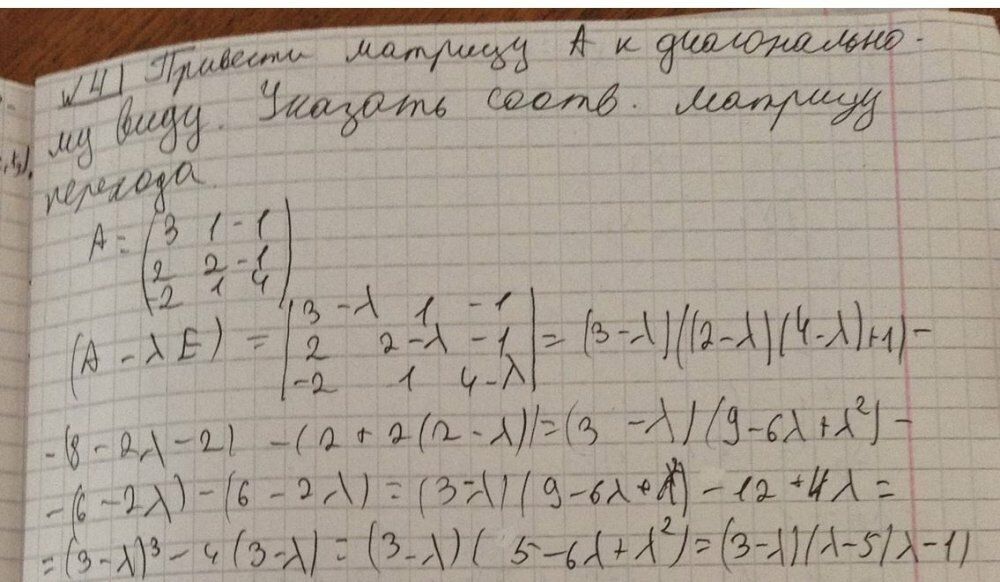 №4 Привести матрицу A к диагонально-
му виду. Указать соотв. матрицу
перехода.
A = (3 1 -1
2 2 -1
-2 1 4)
(A - λE) = |3-λ 1 -1
2 2-λ -1
-2 1 4-λ| = (3-λ)((2-λ)(4-λ)+1) -
-(8-2λ-2) -(2+2(2-λ)) = (3-λ)(9-6λ+λ²) -
-(6-2λ)-(6-2λ) = (3-λ)(9-6λ+λ²) -12+4λ =
= (3-λ)³ - 4(3-λ) = (3-λ)(5-6λ+λ²) = (3-λ)(λ-5)(λ-1)